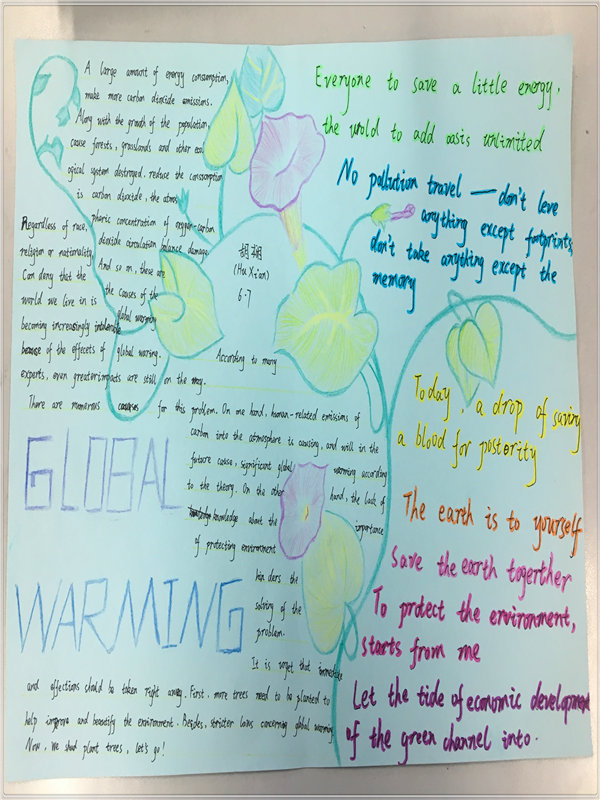 A large amount of energy consumption,
make more carbon dioxide emissions.
Along with the growth of the population,
cause forests, grasslands and other eco
ogical system destroyed, reduce the consumption
is carbon dioxide, the atmos
pheric concentration of oxygen-carbon
dioxide circulation balance damage
And so on, these are
the causes of the
global warming
Regardless of race,
religion or nationality,
Can deny that the
world we live in is
becoming increasingly intolerable
because of the effecets of global waring.
According to many
experts, even greater impacts are still on the way.
There are numerous causes for this problem. On one hand, human-related emissions of
carbon into the atmosphere is causing, and will in the
future cause, significant global warming according
to the theory. On the other hand, the lack of
knowledge about the importance
of protecting environment
hinders the
solving of the
problem.
It is urget that immediate
and effections should be taken right away. First, more trees need to be planted to
help improve and beautify the environment. Besides, stricter laws concerning global warming
Now, we shoud plant trees, let's go!
胡湘
(Hu Xian)
6.7
GLOBAL
WARMING
Everyone to save a little energy,
the world to add oasis unlimited
No pollution travel — don't leve
anything except footprints,
don't take anything except the
memory
Today, a drop of saving
a blood for postority
The earth is to yourself
Save the earth togerther
To protect the environment,
starts from me
Let the tide of economic development
of the green channel into.